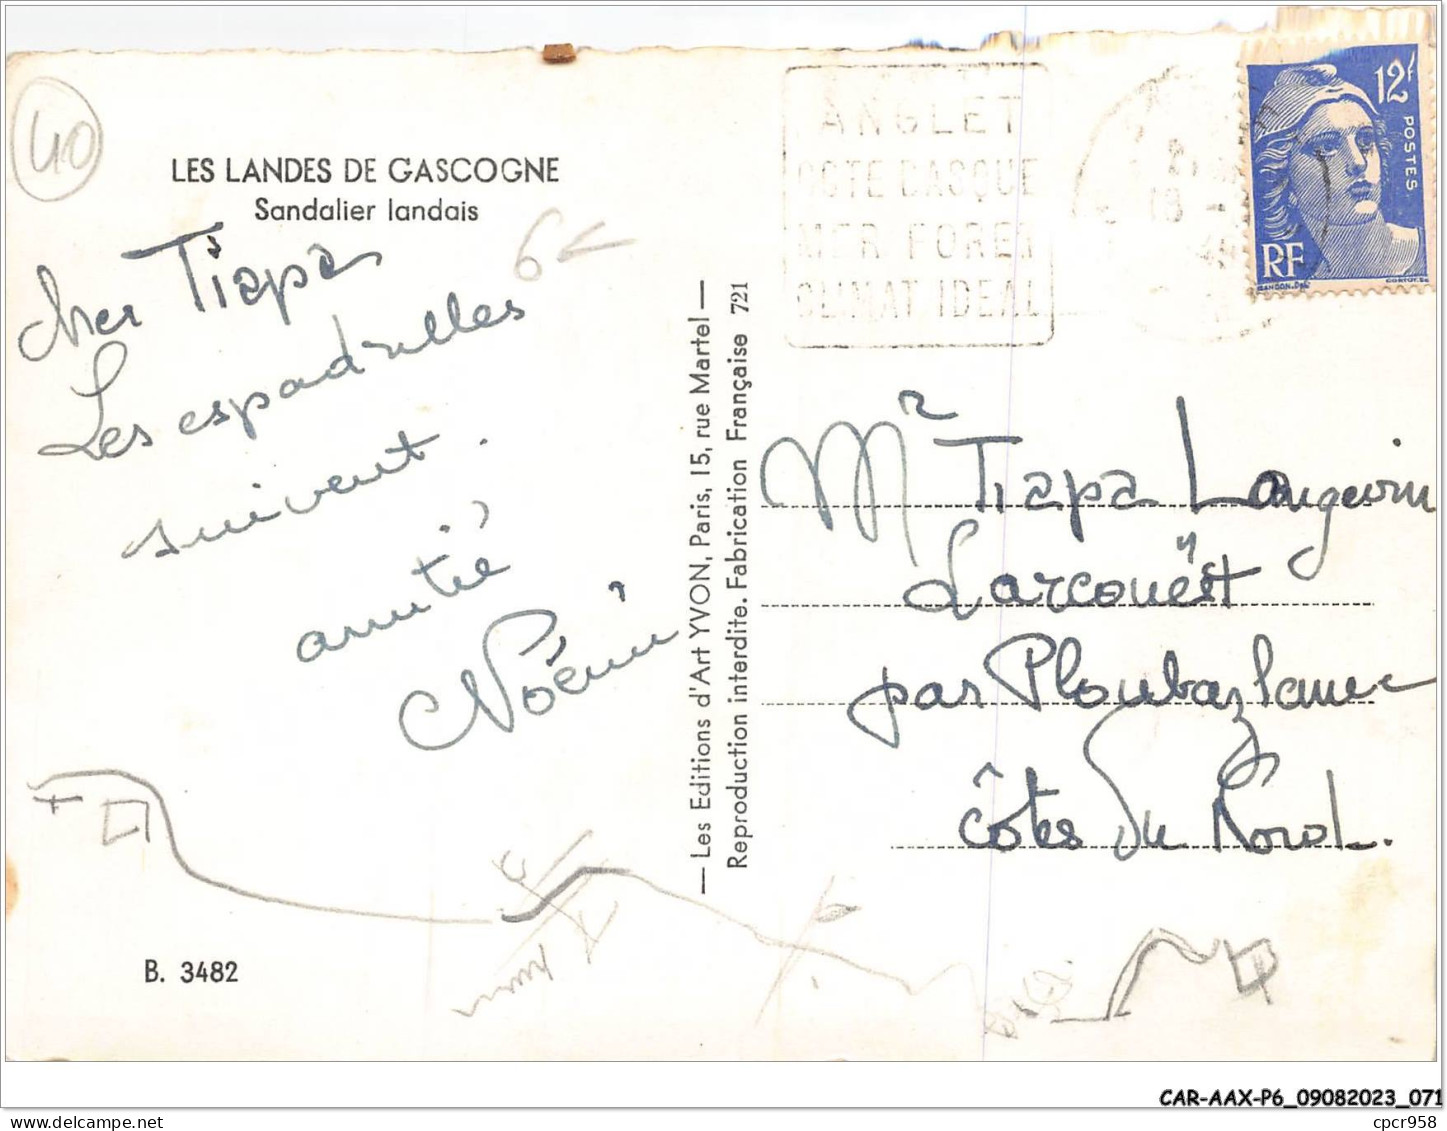 40
LES LANDES DE GASCOGNE
Sandalier landais
6
Cher Tiapa
Les espadrilles
suivent.
amitié
Noémi
B. 3482
— Les Editions d'Art YVON, Paris, 15, rue Martel —
Reproduction interdite. Fabrication Française 721
ANGLET
COTE BASQUE
MER FORET
CLIMAT IDEAL
12f
POSTES
RF
GANDON.DEL
CORTOT.SC
Mr Tiapa Langevin
Larcouëst
par Ploubazlanec
Côtes du Nord.
CAR-AAX-P6_09082023_071
cpcr958